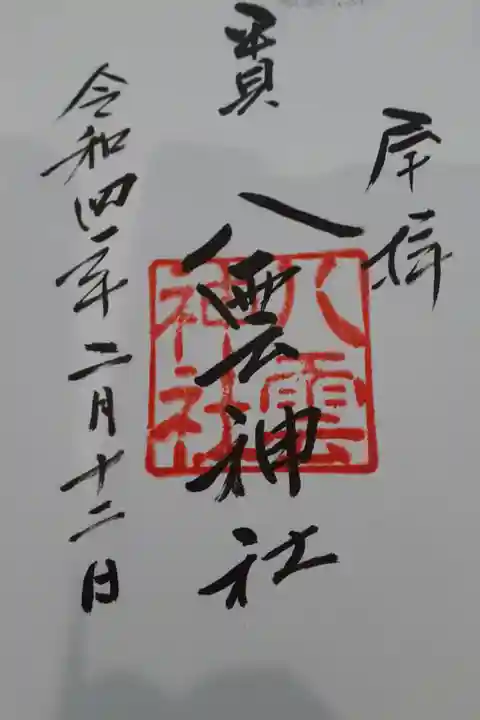 八雲神社
八雲
神社
令和四年二月十二日